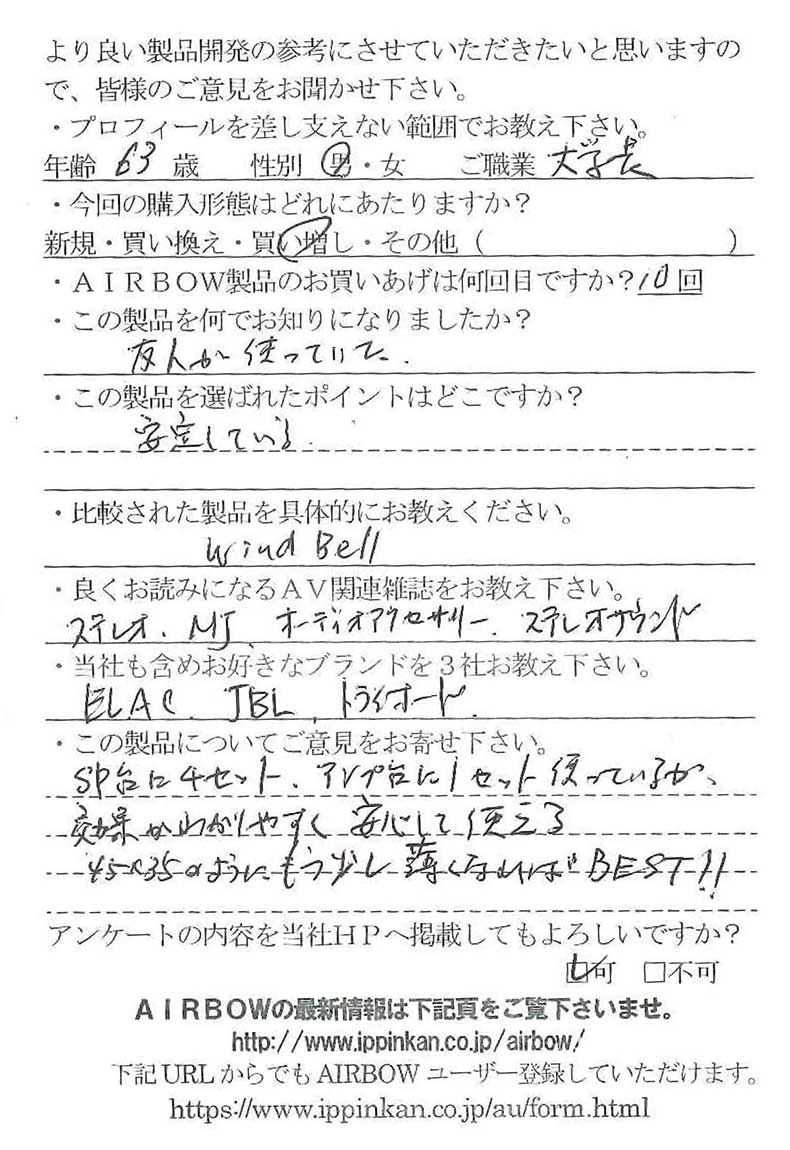 より良い製品開発の参考にさせていただきたいと思いますの
で、皆様のご意見をお聞かせ下さい。
・プロフィールを差し支えない範囲でお教え下さい。
年齢 63 歳 性別 男・女 ご職業 大学長
・今回の購入形態はどれにあたりますか？
新規・買い換え・買い増し・その他（ ）
・ＡＩＲＢＯＷ製品のお買いあげは何回目ですか？10回
・この製品を何でお知りになりましたか？
友人が使っていた.
・この製品を選ばれたポイントはどこですか？
安定している.
・比較された製品を具体的にお教えください。
Wind Bell
・良くお読みになるＡＶ関連雑誌をお教え下さい。
ステレオ、MJ、オーディオアクセサリー、ステレオサウンド
・当社も含めお好きなブランドを３社お教え下さい。
ELAC、JBL、トライオード.
・この製品についてご意見をお寄せ下さい。
SP台に4セット、アンプ台に1セット使っているが、
効果がわかりやすく安心して使える
45×35のようにもう少し薄くなればBEST!!
アンケートの内容を当社ＨＰへ掲載してもよろしいですか？
☑可 □不可
ＡＩＲＢＯＷの最新情報は下記頁をご覧下さいませ。
http://www.ippinkan.co.jp/airbow/
下記URLからでもAIRBOWユーザー登録していただけます。
https://www.ippinkan.co.jp/au/form.html